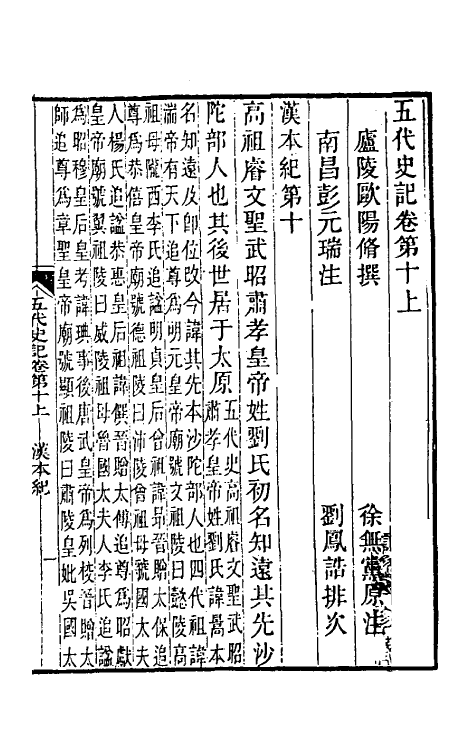 五代史記卷第十上
廬陵歐陽脩撰 徐無黨原注
南昌彭元瑞注 劉鳳誥排次
漢本紀第十
高祖睿文聖武昭肅孝皇帝姓劉氏初名知遠其先沙
陀部人也其後世居于太原
五代史高祖睿文聖武昭
肅孝皇帝姓劉氏諱暠本
名知遠及即位改今諱其先本沙陀部人也四代祖諱
湍帝有天下追尊爲明元皇帝廟號文祖陵曰懿陵高
祖母隴西李氏追諡明貞皇后曾祖諱昂晉贈太保追
尊爲恭僖皇帝廟號德祖陵曰沛陵曾祖母虢國太夫
人楊氏追諡恭惠皇后祖諱僎晉贈太傅追尊爲昭獻
皇帝廟號翼祖陵曰威陵祖母魯國太夫人李氏追諡
爲昭穆皇后皇考諱琠事後唐武皇帝爲列校晉贈太
師追尊爲章聖皇帝廟號顯祖陵曰肅陵皇妣吳國太
五代史記卷第十上 漢本紀 一